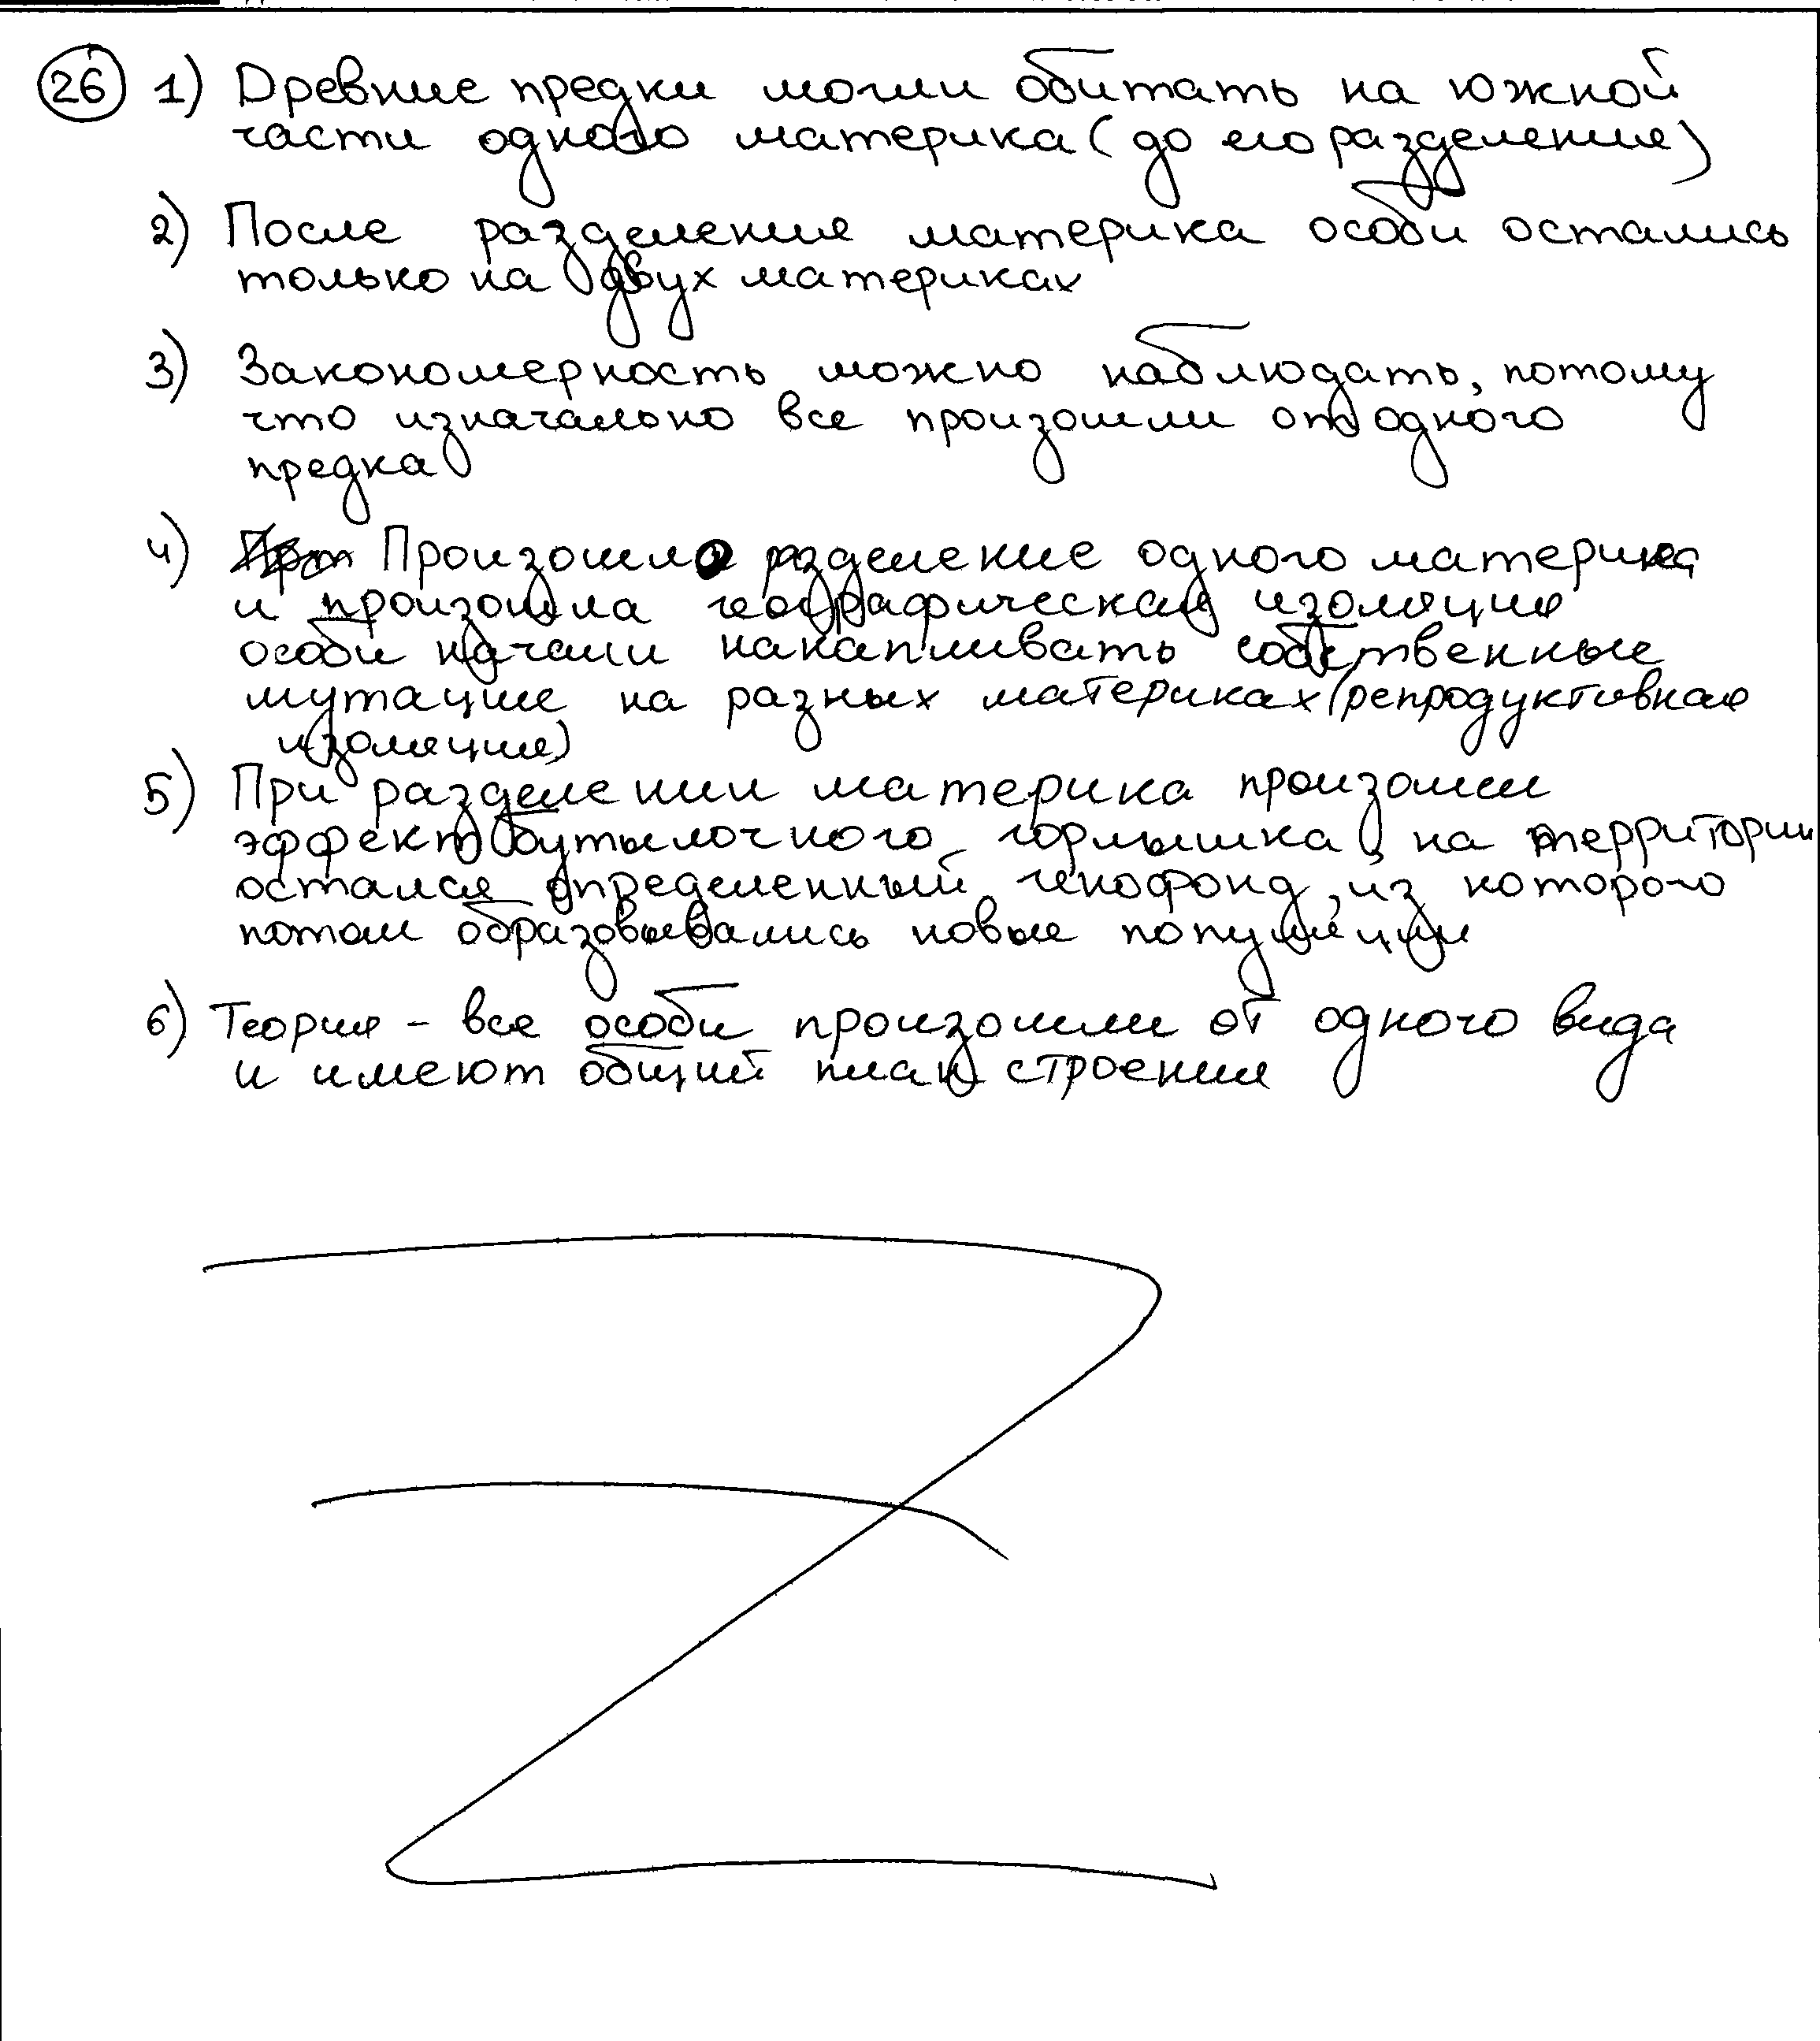 26 1) Древние предки могли обитать на южной
части одного материка (до его разделения)
2) После разделения материка особи остались
только на двух материках
3) Закономерность можно наблюдать, потому
что изначально все произошли от одного
предка
4) Произошло разделение одного материка
и произошла географическая изоляция
особи начали накапливать собственные
мутации на разных материках (репродуктивная
изоляция)
5) При разделении материка произошел
эффект бутылочного горлышка, на территории
остался определенный генофонд, из которого
потом образовывались новые популяции
6) Теория - все особи произошли от одного вида
и имеют общий план строения